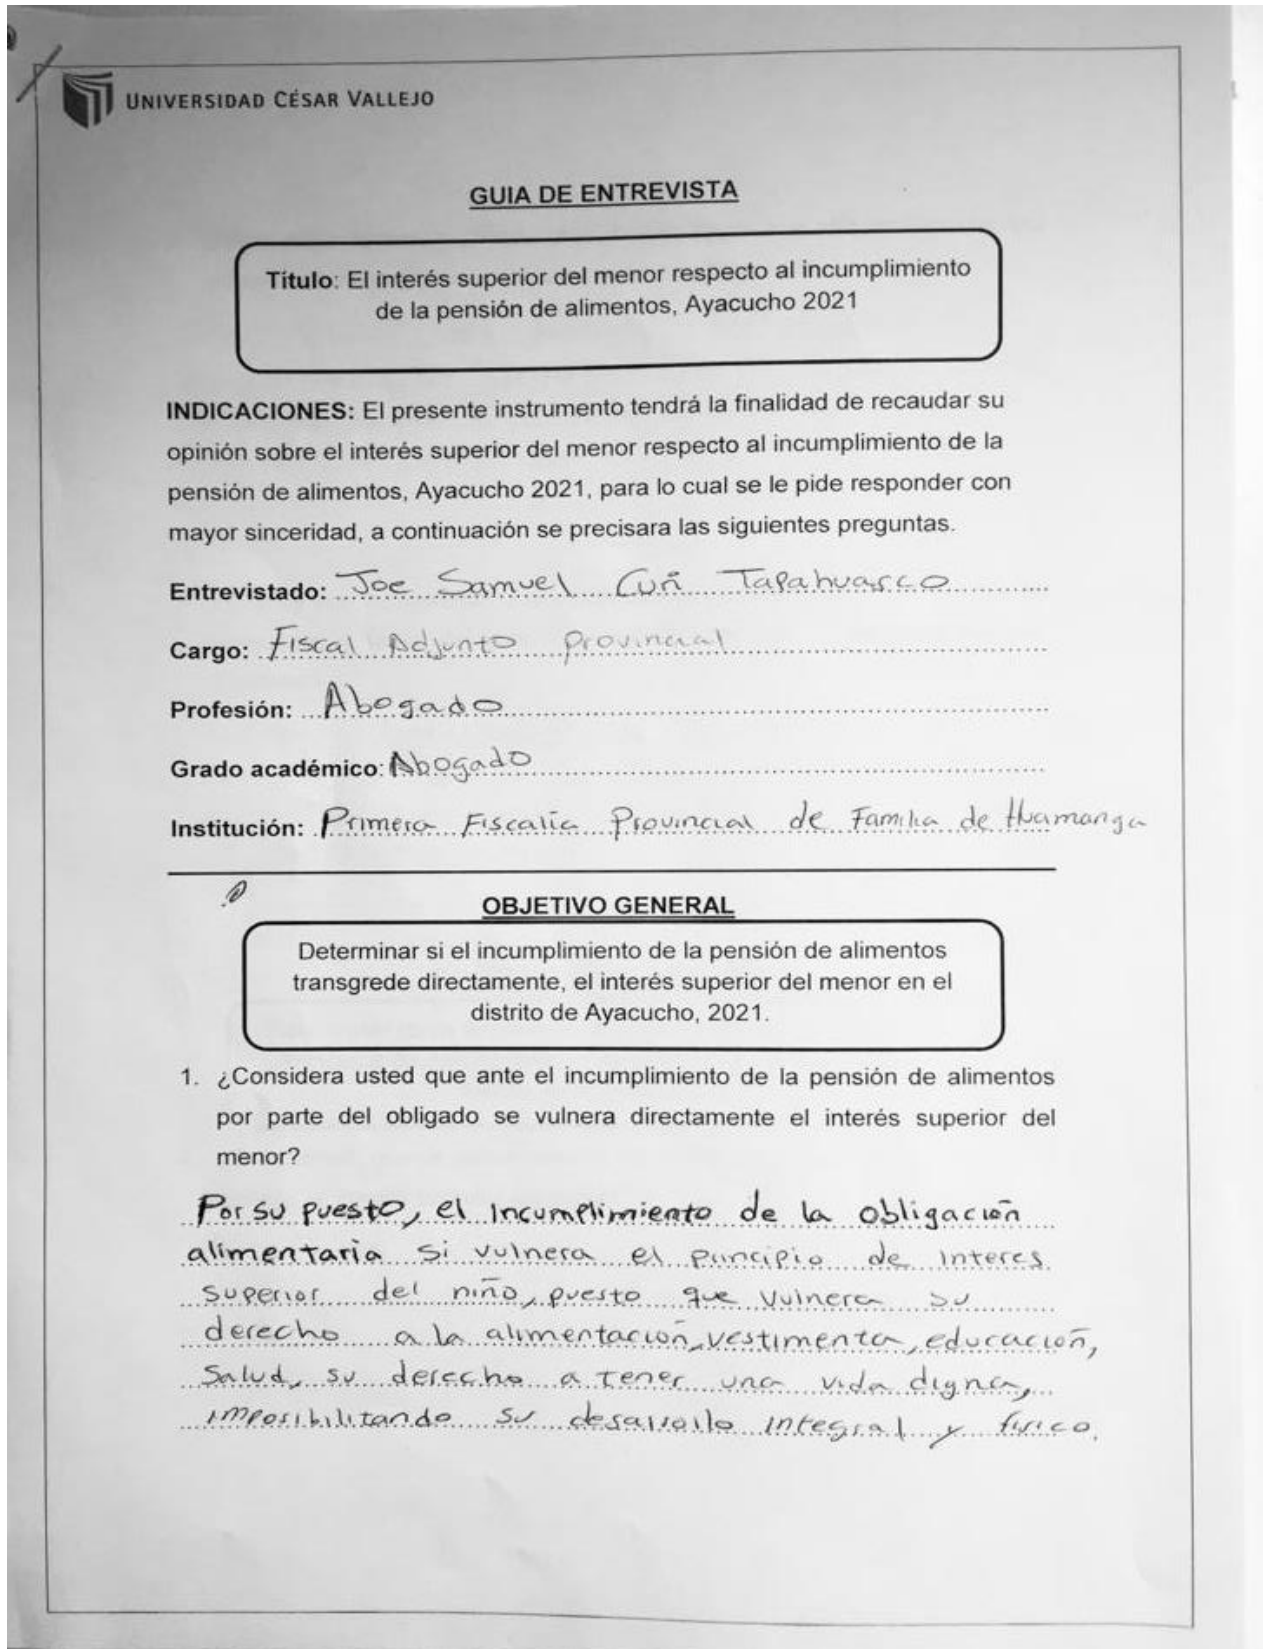 UNIVERSIDAD CÉSAR VALLEJO
GUIA DE ENTREVISTA
Título: El interés superior del menor respecto al incumplimiento
de la pensión de alimentos, Ayacucho 2021
INDICACIONES: El presente instrumento tendrá la finalidad de recaudar su
opinión sobre el interés superior del menor respecto al incumplimiento de la
pensión de alimentos, Ayacucho 2021, para lo cual se le pide responder con
mayor sinceridad, a continuación se precisara las siguientes preguntas.
Entrevistado: Joe Samuel Tapahuasco
Cargo: Fiscal Adjunto Provincial
Profesión: Abogado
Grado académico: Abogado
Institución: Primera Fiscalía Provincial de Familia de Huamanga
OBJETIVO GENERAL
Determinar si el incumplimiento de la pensión de alimentos
transgrede directamente, el interés superior del menor en el
distrito de Ayacucho, 2021.
1. ¿Considera usted que ante el incumplimiento de la pensión de alimentos
por parte del obligado se vulnera directamente el interés superior del
menor?
Por su puesto, el incumplimiento de la obligación
alimentaria si vulnera el principio de interes
superior del niño, puesto que vulnera su
derecho a la alimentación, vestimenta, educación,
salud, su derecho a tener una vida digna,
imposibilitando su desarrollo integral y fisico.